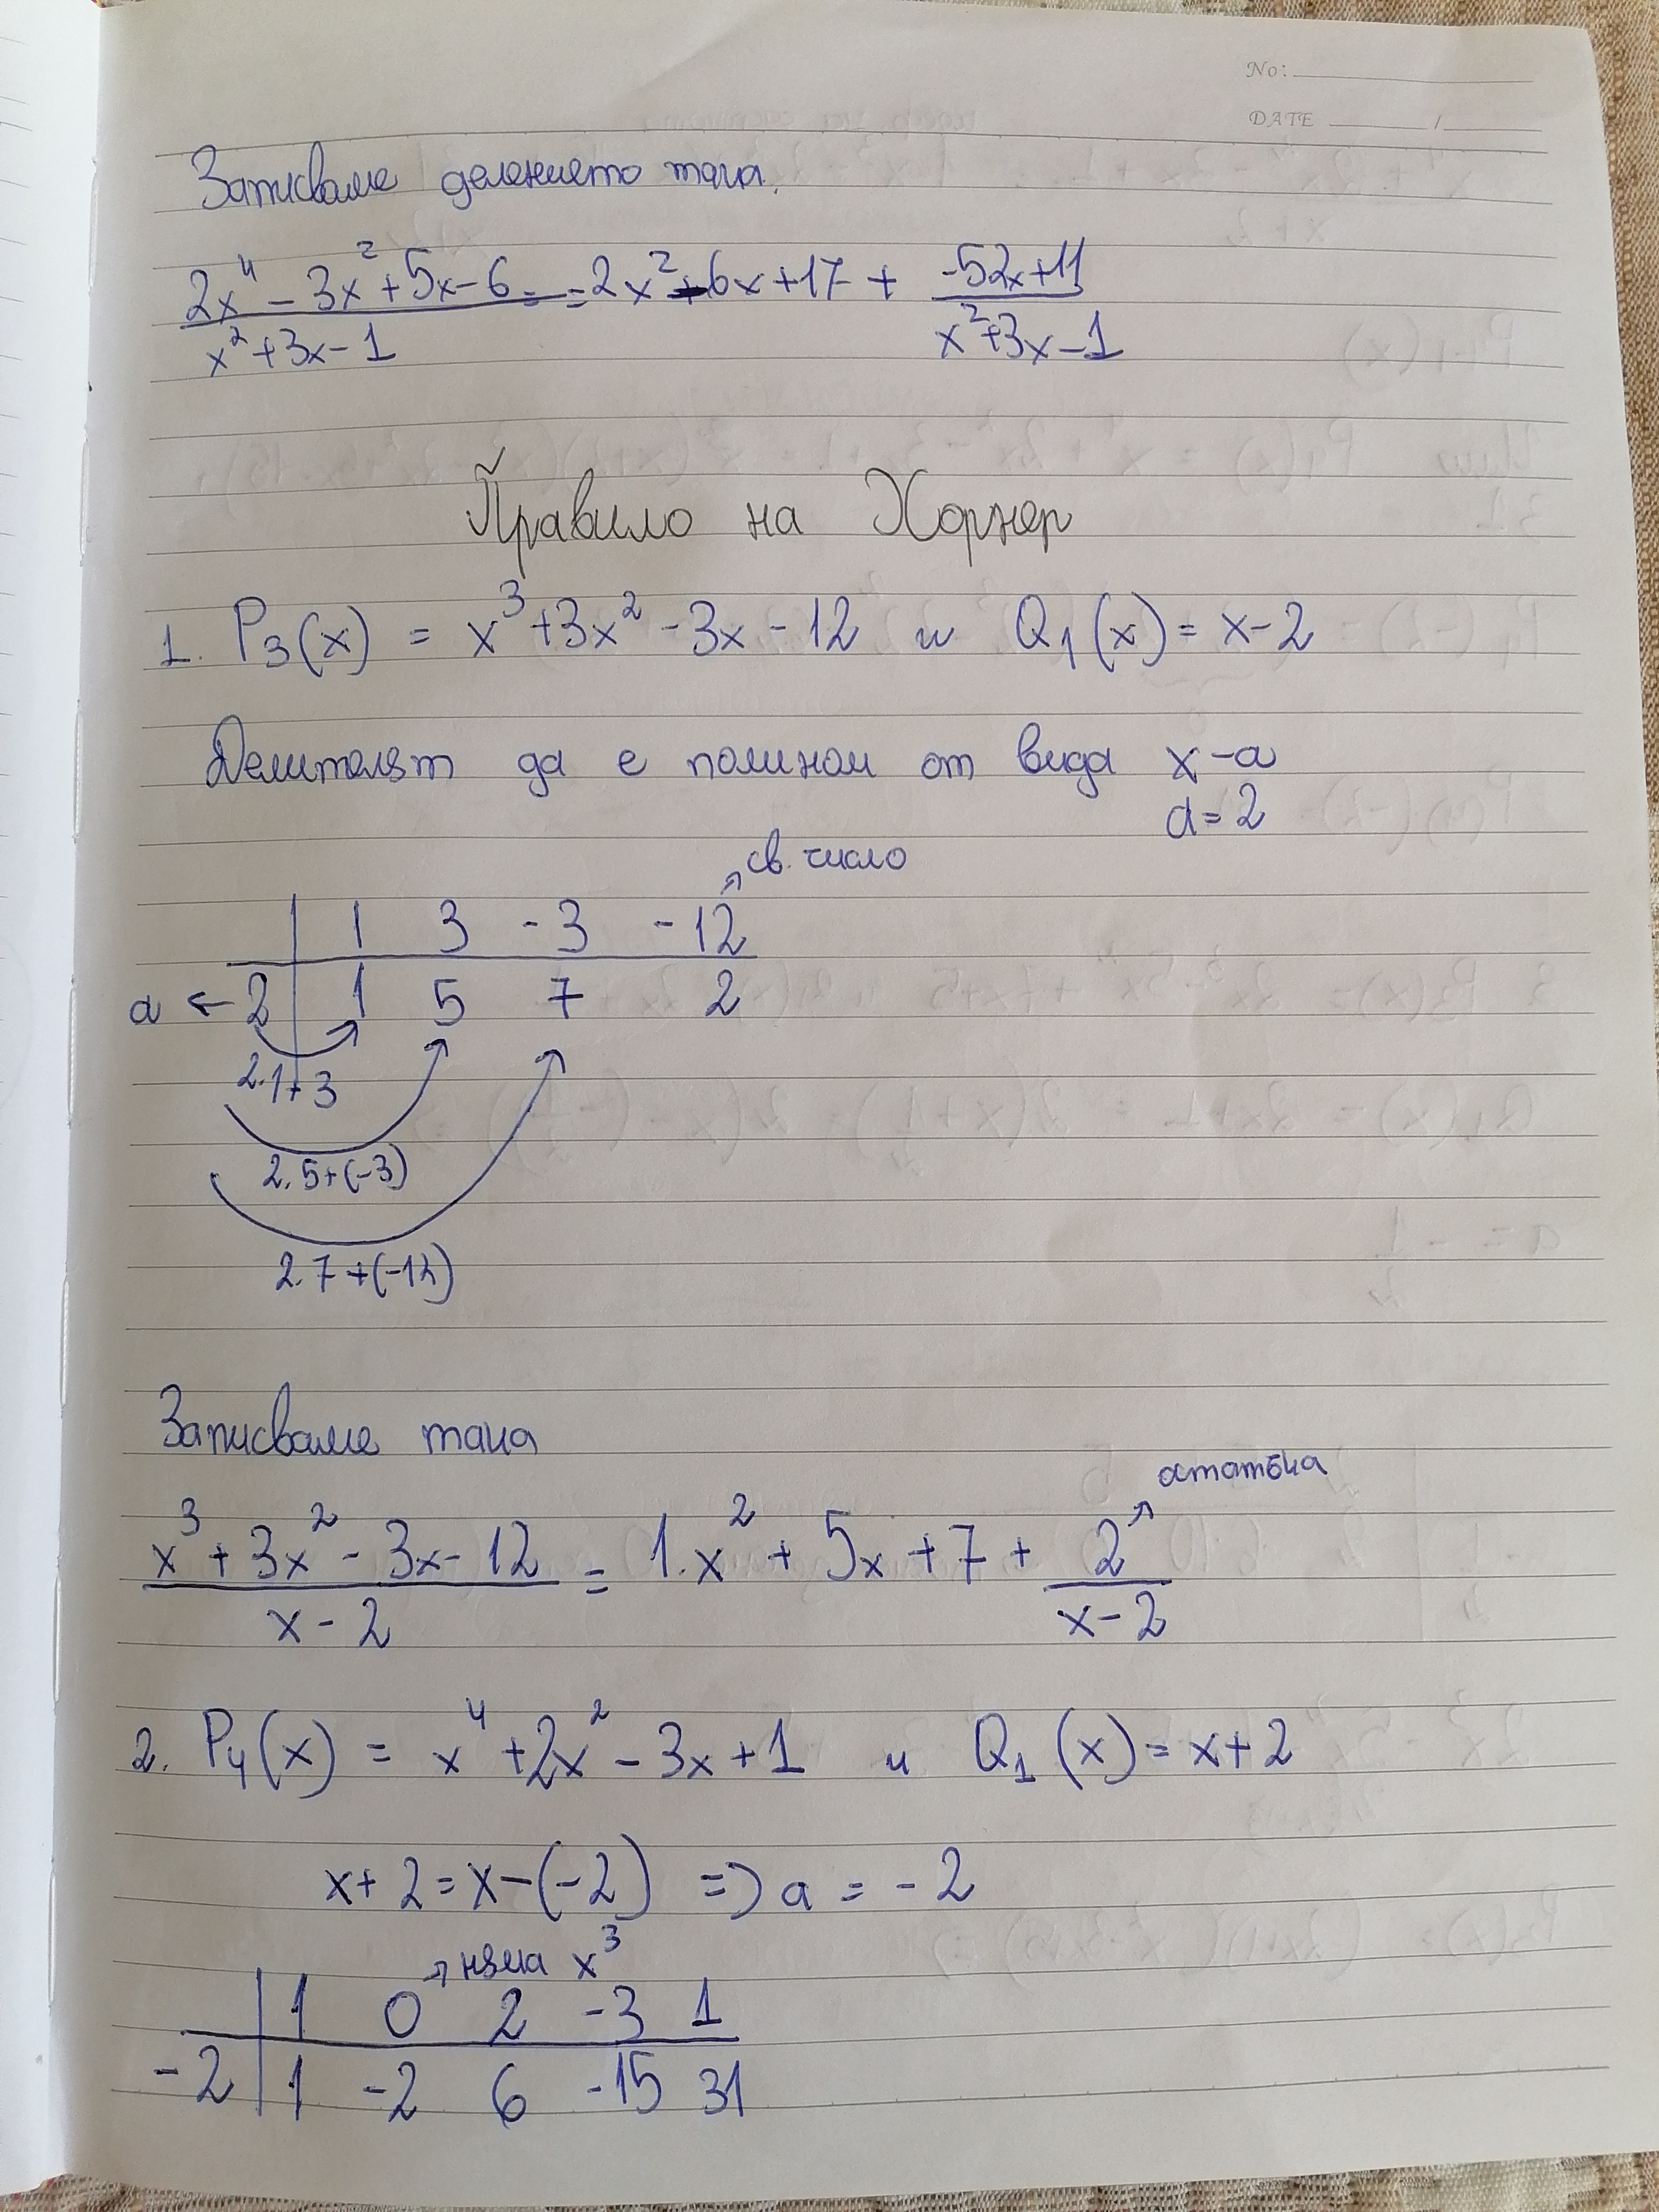 No:
DATE /
Записваме делението така.
2x⁴ - 3x² + 5x - 6 / x² + 3x - 1 = 2x² - 6x + 17 + -52x + 11 / x² + 3x - 1
Правило на Хорнер
1. P₃(x) = x³ + 3x² - 3x - 12 и Q₁(x) = x - 2
Делителят да е полином от вида x - a
a = 2
св. число
1 3 -3 -12
a ← 2 | 1 5 7 2
2.1+3
2.5+(-3)
2.7+(-12)
Записваме така
остатъка
x³ + 3x² - 3x - 12 / x - 2 = 1.x² + 5x + 7 + 2 / x - 2
2. P₄(x) = x⁴ + 2x² - 3x + 1 и Q₁(x) = x + 2
x + 2 = x - (-2) => a = -2
няма x³
1 0 2 -3 1
-2 | 1 -2 6 -15 31